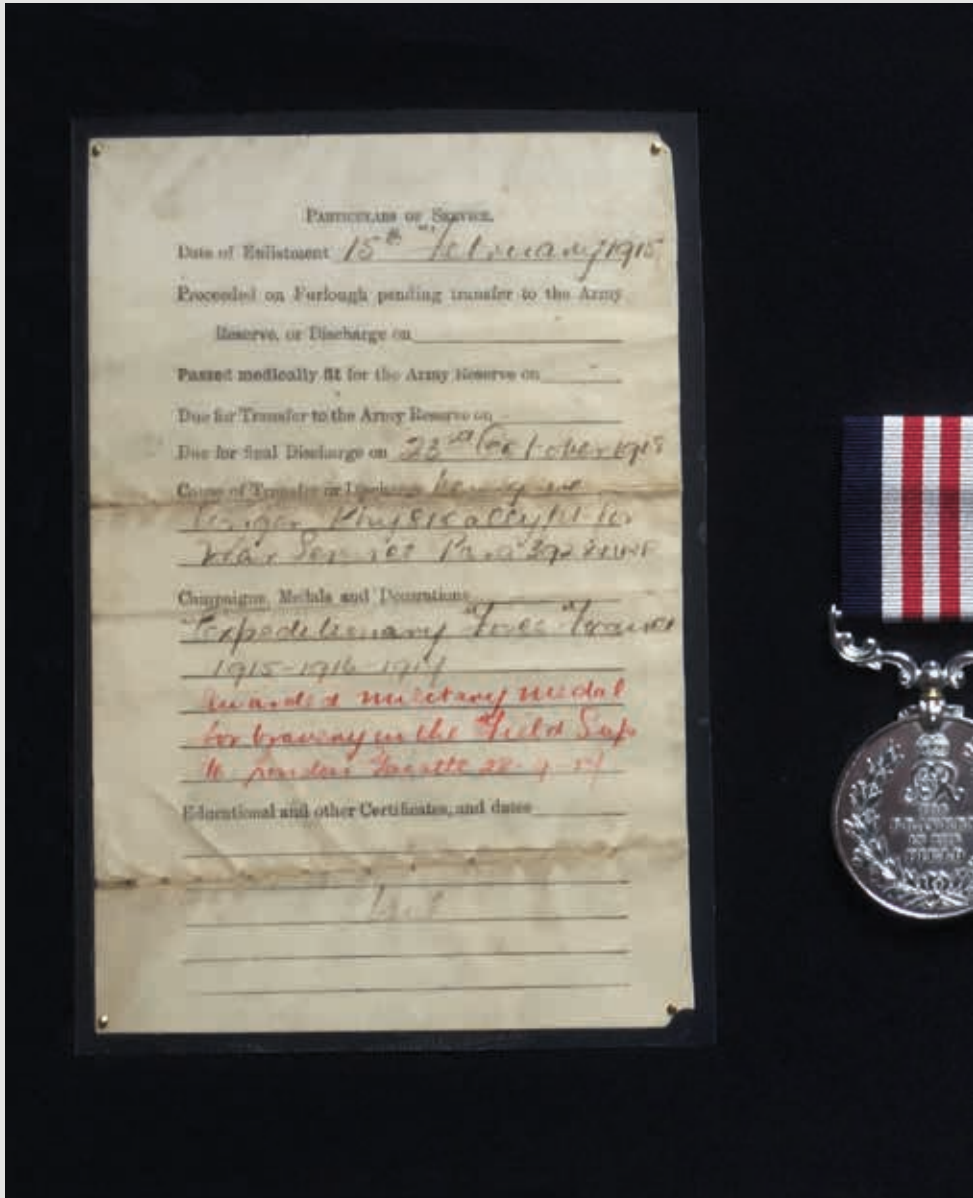 PARTICULARS OF SERVICE.
Date of Enlistment 15th February 1915
Proceeded on Furlough pending transfer to the Army
Reserve, or Discharge on
Passed medically fit for the Army Reserve on
Due for Transfer to the Army Reserve on
Due for final Discharge on 23rd October 1918
Cause of Transfer or Discharge being no
longer Physically fit for
War Service Para 392
Campaigns, Medals and Decorations
Expeditionary Force France
1915-1916-1917
Awarded military medal
for bravery in the Field Sup
to London Gazette
Educational and other Certificates, and dates
FOR
BRAVERY
IN THE
FIELD